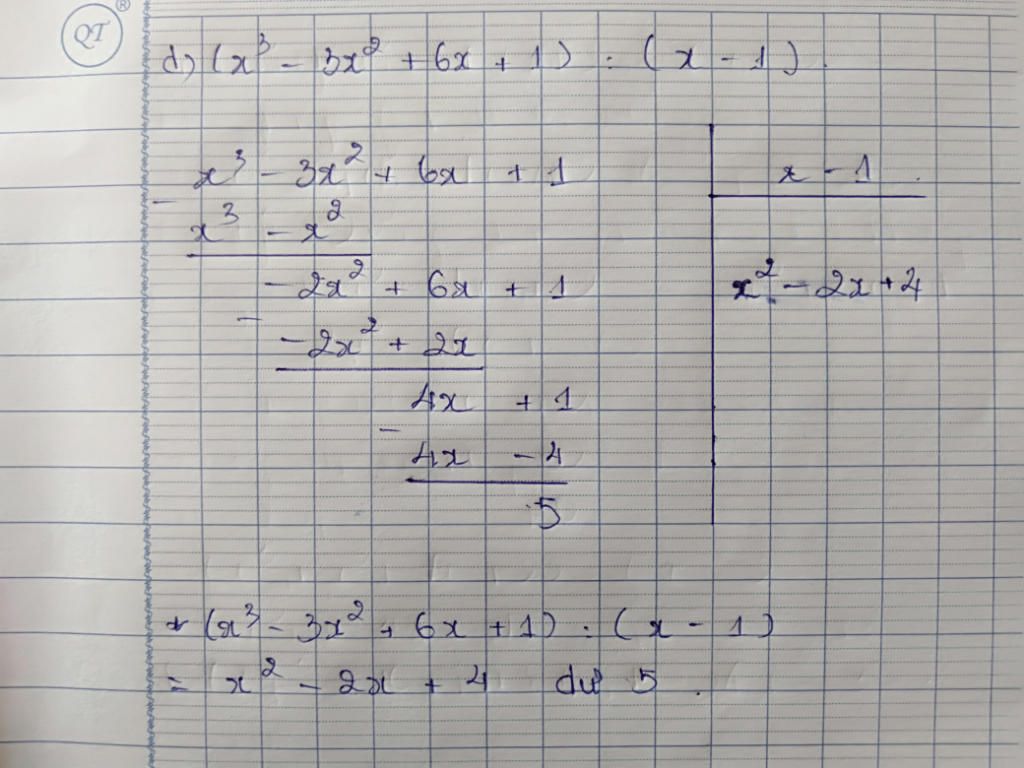 QT ®
d) (x³ - 3x² + 6x + 1) : (x - 1).
x³ - 3x² + 6x + 1 | x - 1.
- x³ - x²
-2x² + 6x + 1 | x² - 2x + 4
- -2x² + 2x
4x + 1
- 4x - 4
5
* (x³ - 3x² + 6x + 1) : (x - 1)
= x² - 2x + 4 dư 5.